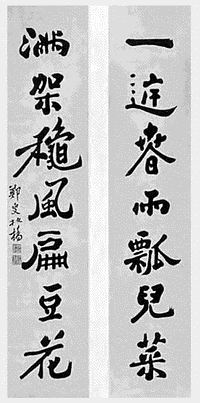 一庭春雨瓢兒菜
滿架穐風扁豆花
鄭燮板橋